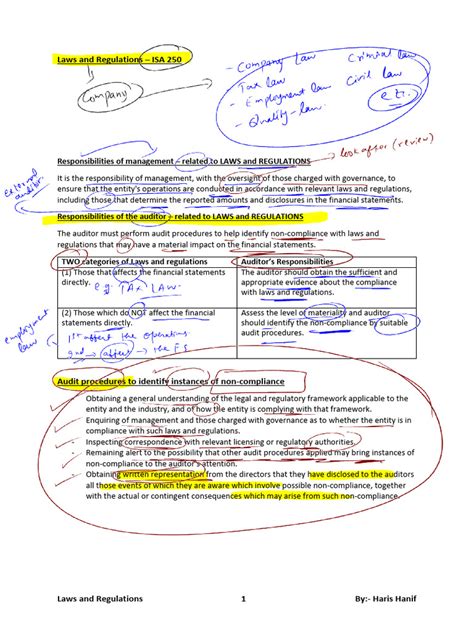 Laws and Regulations – ISA 250
Company
- Company Law
Criminal law
- Tax law
Civil law
- Employment law
- Quality - law
etc.
Responsibilities of management – related to LAWS and REGULATIONS
look after (review)
external auditor
It is the responsibility of management, with the oversight of those charged with governance, to
ensure that the entity's operations are conducted in accordance with relevant laws and regulations,
including those that determine the reported amounts and disclosures in the financial statements.
Responsibilities of the auditor – related to LAWS and REGULATIONS
The auditor must perform audit procedures to help identify non-compliance with laws and
regulations that may have a material impact on the financial statements.
TWO categories of Laws and regulations
Auditor's Responsibilities
(1) Those that affects the financial statements
directly.
e.g: TAX LAW.
The auditor should obtain the sufficient and
appropriate evidence about the compliance
with laws and regulations.
employment law
(2) Those which do NOT affect the financial
statements directly.
1st affect the operations
2nd → affect → the F.S
Assess the level of materiality and auditor
should identify the non-compliance by suitable
audit procedures.
Audit procedures to identify instances of non-compliance
Obtaining a general understanding of the legal and regulatory framework applicable to the
entity and the industry, and of how the entity is complying with that framework.
Enquiring of management and those charged with governance as to whether the entity is in
compliance with such laws and regulations.
Inspecting correspondence with relevant licensing or regulatory authorities.
Remaining alert to the possibility that other audit procedures applied may bring instances of
non-compliance to the auditor's attention.
Obtaining written representation from the directors that they have disclosed to the auditors
all those events of which they are aware which involve possible non-compliance, together
with the actual or contingent consequences which may arise from such non-compliance.
Laws and Regulations
1
By:- Haris Hanif